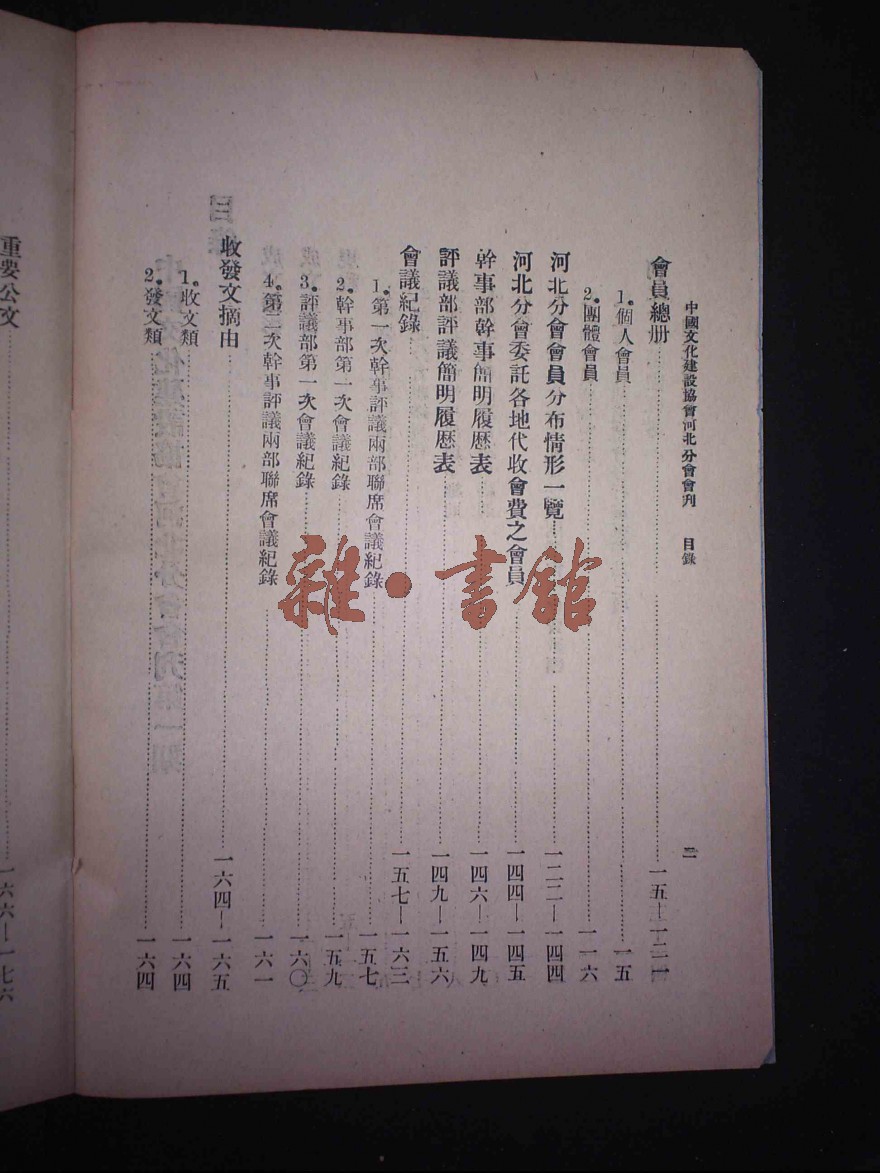 中國文化建設協會河北分會會刊　目錄　二
會員總册……一五—一二一
1.個人會員……一五
2.團體會員……一一六
河北分會會員分布情形一覽……一二二—一四四
河北分會委託各地代收會費之會員……一四四—一四五
幹事部幹事簡明履歷表……一四六—一四九
評議部評議簡明履歷表……一四九—一五六
會議紀錄……一五七—一六三
1.第一次幹事評議兩部聯席會議紀錄……一五七
2.幹事部第一次會議紀錄……一五九
3.評議部第一次會議紀錄……一六〇
4.第二次幹事評議兩部聯席會議紀錄……一六一
收發文摘由……一六四—一六五
1.收文類……一六四
2.發文類……一六四
重要公文……一六六—一七六
雜·書館